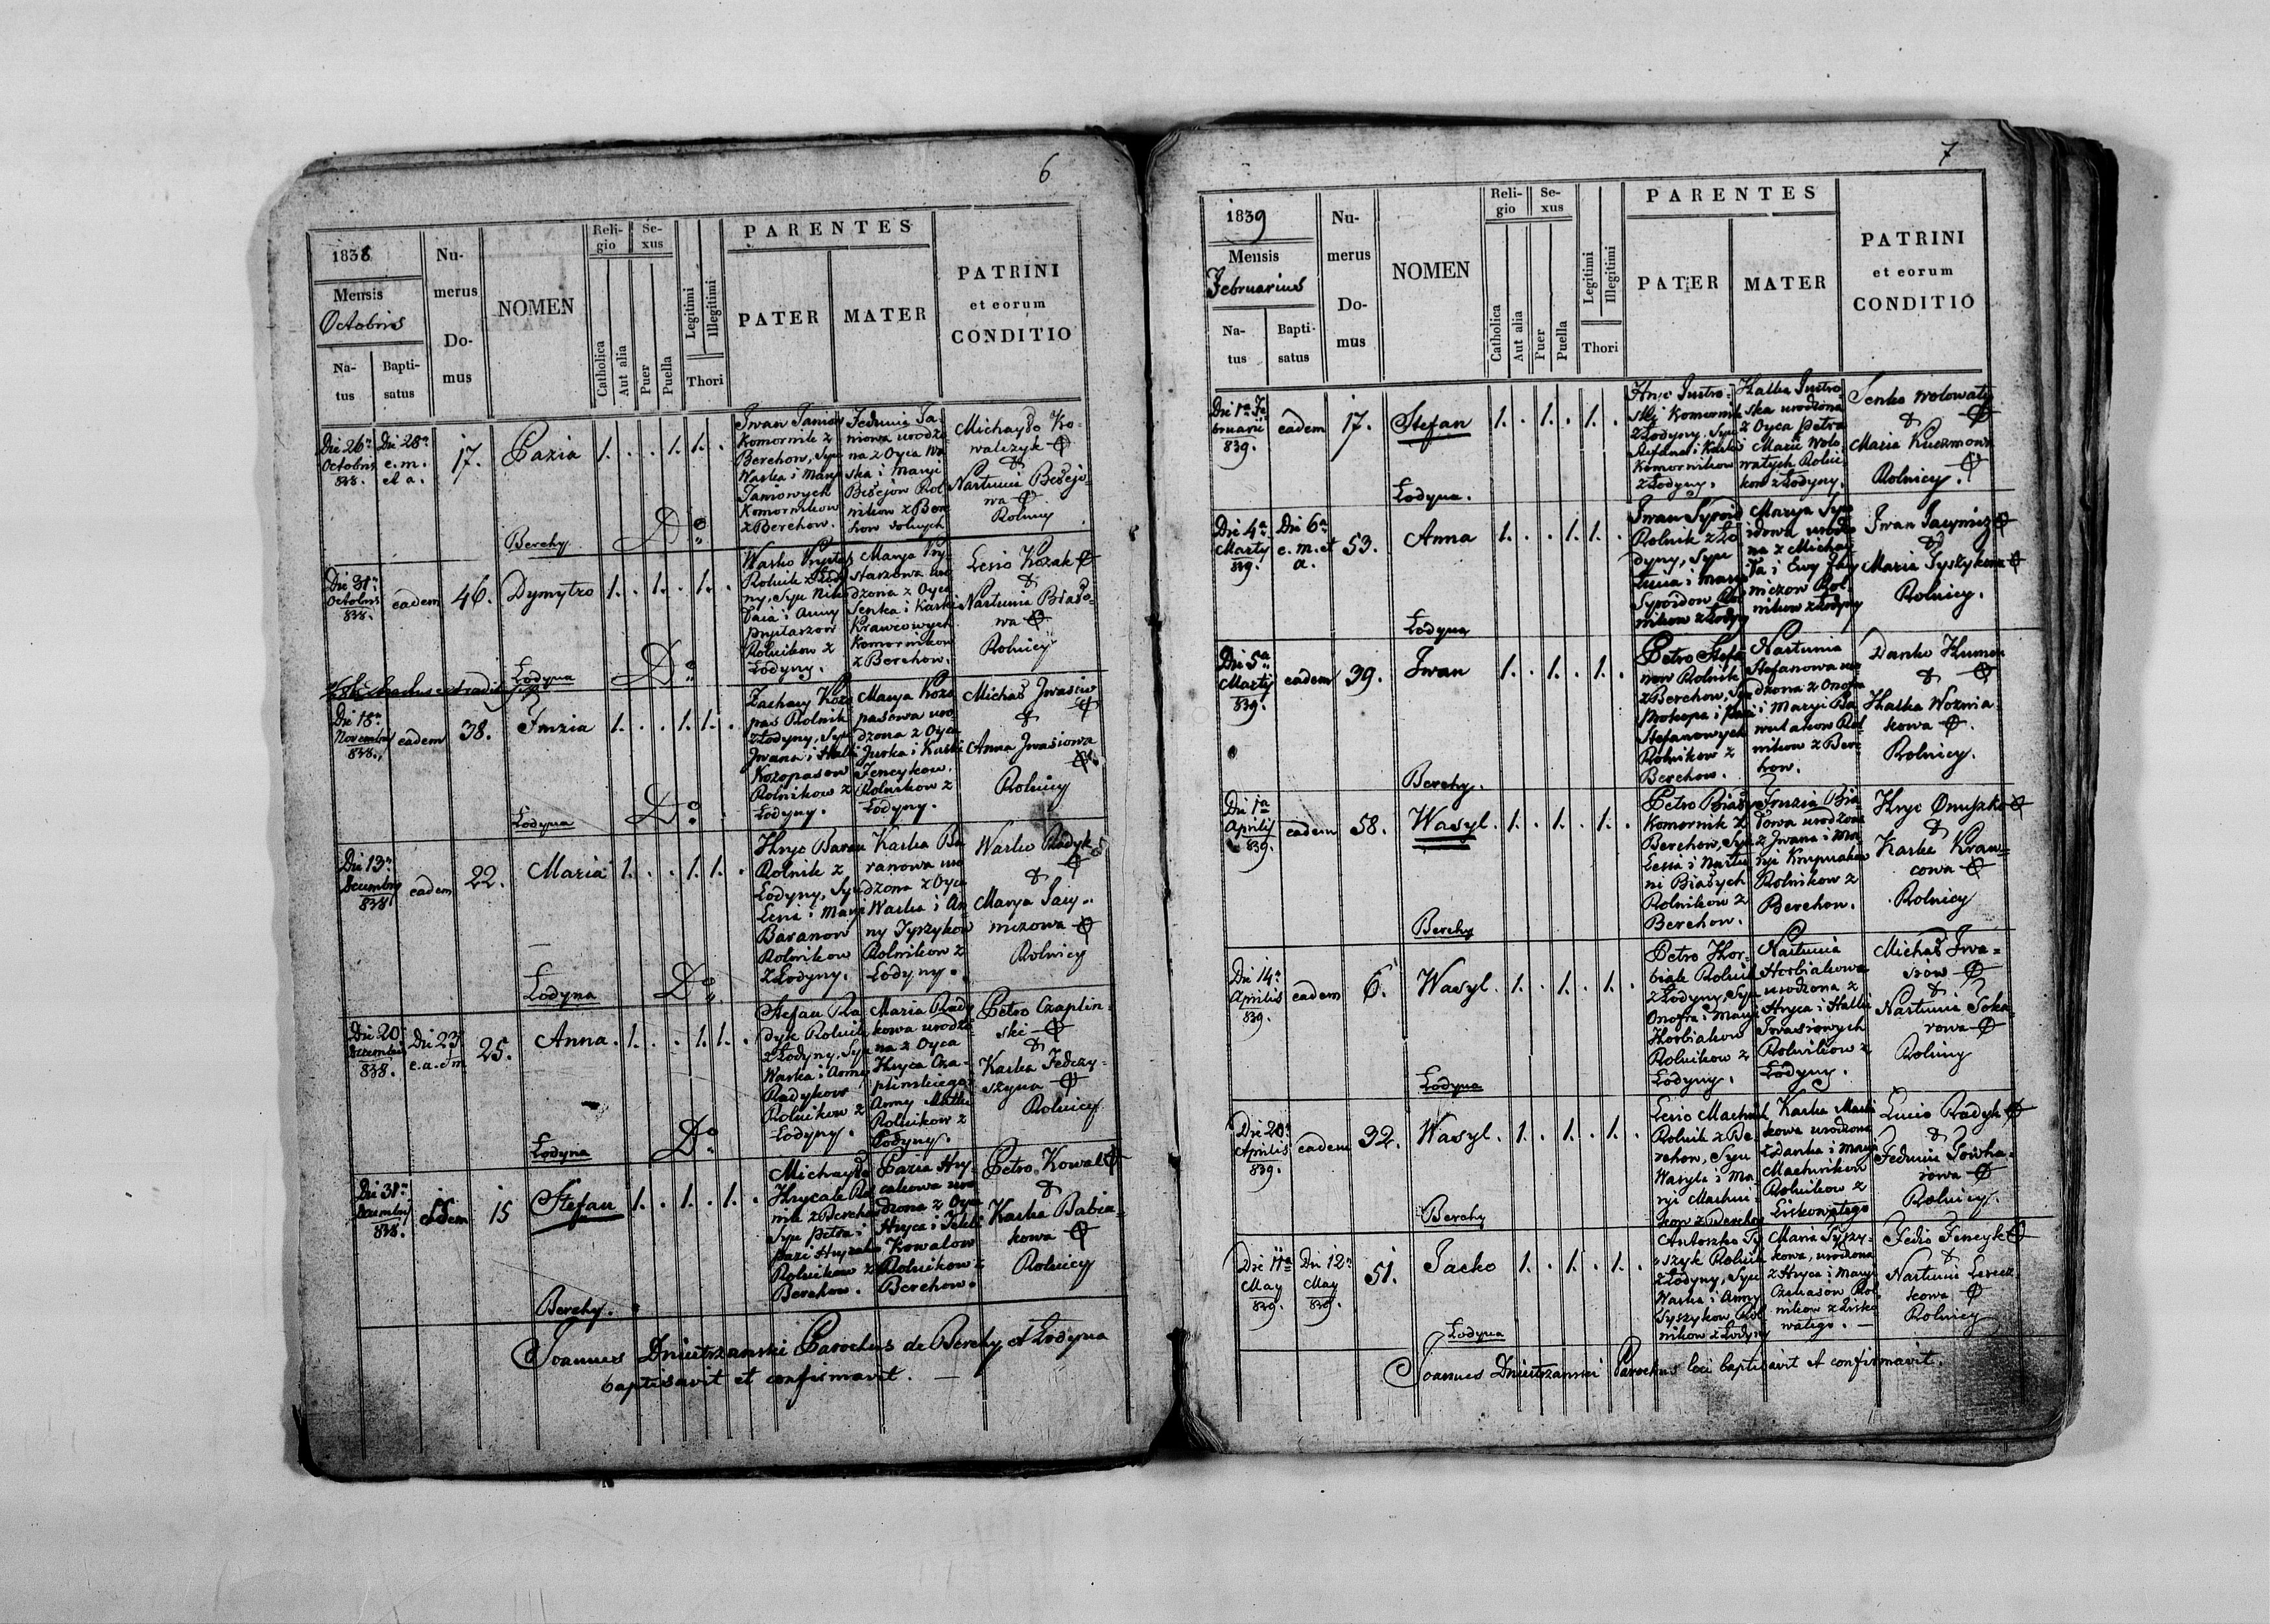 6
1838
Mensis
Octobris
Na-
tus
Bapti-
satus
Nu-
merus
Do-
mus
NOMEN
Reli-
gio
Catholica
Aut alia
Se-
xus
Puer
Puella
Legitimi
Illegitimi
Thori
PARENTES
PATER
MATER
PATRINI
et eorum
CONDITIO
Die 26a
Octobris
838.
Die 28a
e. m.
et a.
17.
Pazia
1. . . 1. 1. .
Berchy
Do
Iwan Janiow
Komornik z
Berchow, Syn
Waska i Mary
Janiowych
Komornikow
z Berchow.
Fedunia Ja-
niowa urodzo-
na z Oyca Wa-
ska i Maryi
Beсejow Rol
nikow z Ber
chow
Michayło Ko-
walczyk
&
Nastunia Beсejo-
wa
Rolnicy
Die 31a
Octobris
838.
eadem
46.
Dymytro
1. . 1. . 1. .
Łodyna
Do
Wasko Prystasz
Rolnik z Łody
ny, Syn Niko
łaia i Anny
Prystaszow
Rolnikow z
Łodyny.
Marya Pry-
staszowa uro
dzona z Oyca
Senka i Kaski
Krawcowych
Komornikow
z Berchow.
Lesio Kozak
&
Nastunia Biało-
wa
Rolnicy
Die 18a
Novembris
838.
eadem
38.
Fruzia
1. . . 1. 1. .
Łodyna
Do
Zachary Kozo
pas Rolnik
z Łodyny, Syn
Iwana i Halki
Kozopasow
Rolnikow z
Łodyny.
Marya Kozo
pasowa uro
dzona z Oyca
Jurka i Kaski
Fencykow
Rolnikow z
Łodyny.
Michał Iwasiw
&
Anna Iwasiowa
Rolnicy
Die 13a
Decembris
838
eadem
22.
Maria
1. . . 1. 1. .
Łodyna
Do
Hryc Baran
Rolnik z
Łodyny, Syn
Lesia i Maryi
Baranow
Rolnikow
z Łodyny.
Kaska Ba
ranowa uro
dzona z Oyca
Waska i An
ny Tyszykow
Rolnikow z
Łodyny.
Wasko Radyk
&
Marya Jacy-
niczowa
Rolnicy
Die 20
Decembris
838.
Die 23
e. a. et m
25.
Anna.
1. . . 1. 1. .
Łodyna
Do
Stefan Ra
dyk Rolnik
z Łodyny, Syn
Waska i Anny
Radykow
Rolnikow z
Łodyny.
Maria Rady
kowa urodzo
na z Oyca
Hryca Cza-
plinskiego
Anny Matki
Rolnikow z
Łodyny.
Petro Czaplin-
ski
&
Kaska Fedczy-
szyna
Rolnicy
Die 31a
Decembris
838.
eadem
15
Stefan
1. . 1. . 1. .
Berchy.
Michayło
Hrycak Rol
nik z Berchow
Syn Petra i
Pazi Hrycako
Rolnikow z
Berchow.
Pazia Hry-
cakowa uro
dzona z Oyca
Hryca i Tekli
Kowalow
Rolnikow z
Berchow.
Petro Kowal
&
Kaska Babia-
kowa
Rolnicy
Joannes Dniestrzanski Parochus de Berchy et Łodyna
baptisavit et confirmavit.
7
1839
Mensis
Februarius
Na-
tus
Bapti-
satus
Nu-
merus
Do-
mus
NOMEN
Reli-
gio
Catholica
Aut alia
Se-
xus
Puer
Puella
Legitimi
Illegitimi
Thori
PARENTES
PATER
MATER
PATRINI
et eorum
CONDITIO
Die 1a Fe
bruarii
839.
eadem
17.
Stefan
1. . 1. . 1. .
Łodyna.
Hryc Justro-
ski Komornik
z Łodyny, Syn
Stefana i Kaski
Komornikow
z Łodyny.
Halka Justro
ska urodzona
z Oyca Petra
i Marii Woło
watych Rolni
kow z Łodyny.
Senko Wołowaty
&
Maria Kuzmowa
Rolnicy.
Die 4a
Marty
839.
Die 6a
e. m. et
a.
53.
Anna
1. . . 1. 1. .
Łodyna
Iwan Syroid
Rolnik z Ło
dyny, Syn
Syroidow Rol
nikow z Łodyny
Marya Syro
idowa urodzo
na z Michay
ła i Ewy Jacy
niczow Rol
nikow z Łodyny
Iwan Jacynicz
&
Maria Tyszykowa
Rolnicy.
Die 5a
Marty
839.
eadem
39.
Iwan
1. . 1. . 1. .
Berchy.
Petro Stefa
now Rolnik
z Berchow, Syn
Prokopa i
Stefanowych
Rolnikow z
Berchow.
Nastunia
Stefanowa uro
dzona z Onofra
i Maryi Ba
wulakow Rol
nikow z Ber-
chow.
Danko Humen
&
Halka Woznia-
kowa
Rolnicy.
Die 1a
Aprilis
839.
eadem
58.
Wasyl.
1. . 1. . 1. .
Berchy
Petro Biały
Komornik z
Berchow, Syn
Lesia i Nastu
ni Białych
Rolnikow z
Berchow.
Fruzia Bia-
łowa urodzona
z Iwana i Ma
ryi Knypiakow
Rolnikow z
Berchow.
Hryc Onuszko
&
Kaska Kraw-
cowa
Rolnicy
Die 14a
Aprilis
839.
eadem
6.
Wasyl.
1. . 1. . 1. .
Łodyna
Petro Hor-
biak Rolnik
z Łodyny, Syn
Onofra i Maryi
Horbiakow
Rolnikow z
Łodyny.
Nastunia
Horbiakowa
urodzona z
Hryca i Halki
Iwasiowych
Rolnikow z
Łodyny.
Michał Iwa-
siow
&
Nastunia Toka-
rowa
Rolnicy
Die 20a
Aprilis
839.
eadem
32.
Wasyl.
1. . 1. . 1. .
Berchy
Lesio Machnik
Rolnik z Be-
rchow, Syn
Wasyla i Ma-
ryi Machni-
kow z Berchow
Kaska Machni
kowa urodzona
z Danka i Maryi
Machnikow
Rolnikow z
Liskowatego
Lucio Radyk
&
Fedunia
rowa
Rolnicy.
Die 11a
May
839.
Die 12a
May
839.
51.
Jacko
1. . 1. . 1. .
Łodyna
Antoszko Ty
szyk Rolnik
z Łodyny, Syn
Waska i Anny
Tyszykow Rol
nikow z Łodyny
Maria Tyszy-
kowa, urodzona
z Hryca i Maryi
Rol
nikow z Lisko
watego.
Fedio Fencyk
&
Nastunia
kowa
Rolnicy
Joannes Dniestrzanski Parochus loci baptisavit et confirmavit.